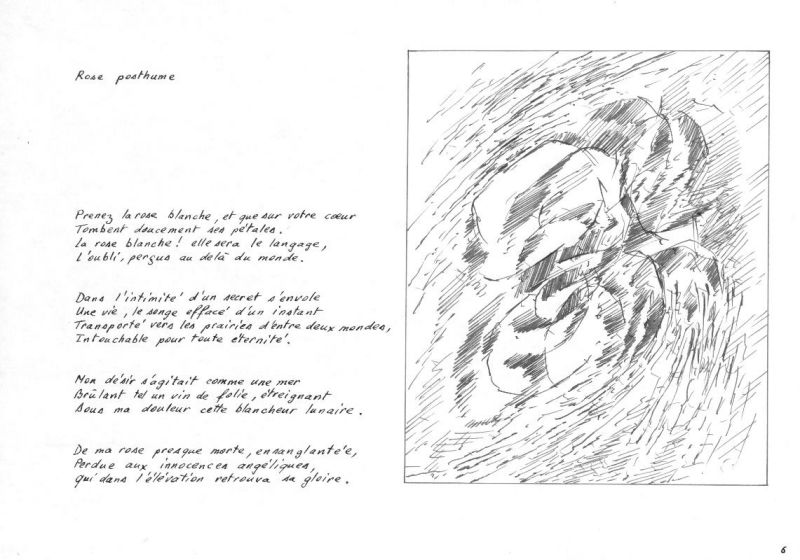 Rose posthume
Prenez la rose blanche, et que sur votre cœur
Tombent doucement ses pétales.
La rose blanche! elle sera le langage,
L'oubli, perçus au delà du monde.
Dans l'intimité d'un secret s'envole
Une vie, le songe effacé d'un instant
Transporté vers les prairies d'entre deux mondes,
Intouchable pour toute éternité.
Mon désir s'agitait comme une mer
Brûlant tel un vin de folie, étreignant
Sous ma douleur cette blancheur lunaire.
De ma rose presque morte, ensanglantée,
Perdue aux innocences angéliques,
qui dans l'élévation retrouva sa gloire.
6